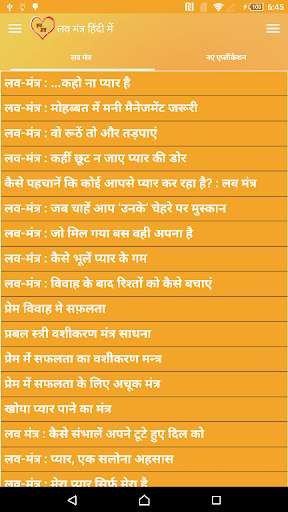 6:45
लव मंत्र हिंदी में
लव मंत्र
नए एप्लीकेशन
लव-मंत्र : ...कहो ना प्यार है
लव-मंत्र : मोहब्बत में मनी मैनेजमेंट जरूरी
लव-मंत्र : वो रूठें तो और तड़पाएं
लव-मंत्र : कहीं छूट न जाए प्यार की डोर
कैसे पहचानें कि कोई आपसे प्यार कर रहा है? : लव मंत्र
लव-मंत्र : जब चाहें आप 'उनके' चेहरे पर मुस्कान
लव-मंत्र : जो मिल गया बस वही अपना है
लव-मंत्र : कैसे भूलें प्यार के गम
लव-मंत्र : विवाह के बाद रिश्तों को कैसे बचाएं
प्रेम विवाह मे सफ़लता
प्रबल स्त्री वशीकरण मंत्र साधना
प्रेम में सफलता का वशीकरण मन्त्र
प्रेम में सफलता के लिए अचूक मंत्र
खोया प्यार पाने का मंत्र
लव मंत्र : कैसे संभालें अपने टूटे हुए दिल को
लव-मंत्र : प्यार, एक सलोना अहसास
लव-मंत्र : मेरा प्यार सिर्फ मेरा है